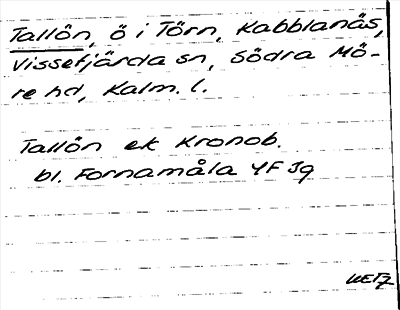 Tallön, ö i Törn, Kabblanäs,
Vissefjärda sn, Södra Mö-
re hd, Kalm. l.
Tallön ek Kronob.
bl. Fornamåla 4F Jg